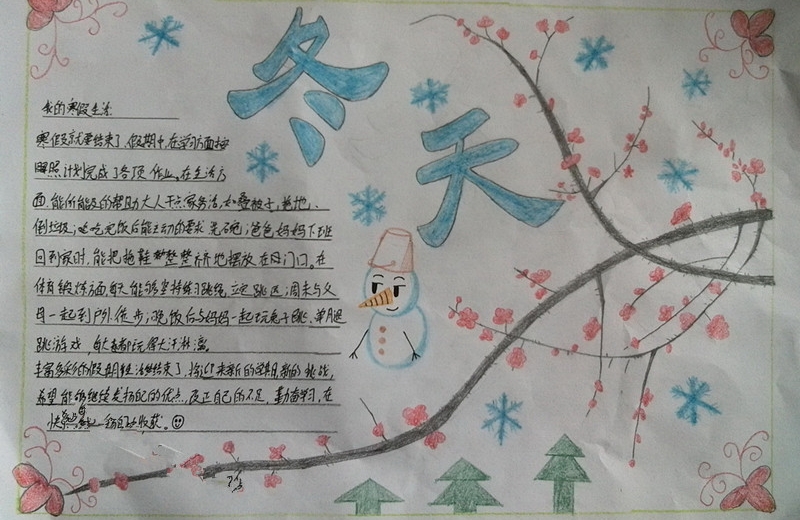 冬天
我的寒假生活
寒假就要结束了,假期中在学习方面按
照计划完成了各项作业。在生活方
面,能所能及的帮助大人干点家务活,如叠被子、拖地、
倒垃圾;吃完饭后能主动的要求洗碗;爸爸妈妈下班
回到家时,能把拖鞋整整齐齐地摆放在门口。在
体育锻炼方面每天能够坚持练习跳绳,立定跳远;周末与父
母一起到户外健步;晚饭后与妈妈一起玩兔子跳、单腿
跳游戏,每次都玩得大汗淋漓。
丰富多彩的假期生活结束了,将迎来新的学期,新的挑战,
希望能够继续发扬自己的优点,改正自己的不足,勤奋学习,在
快收获。